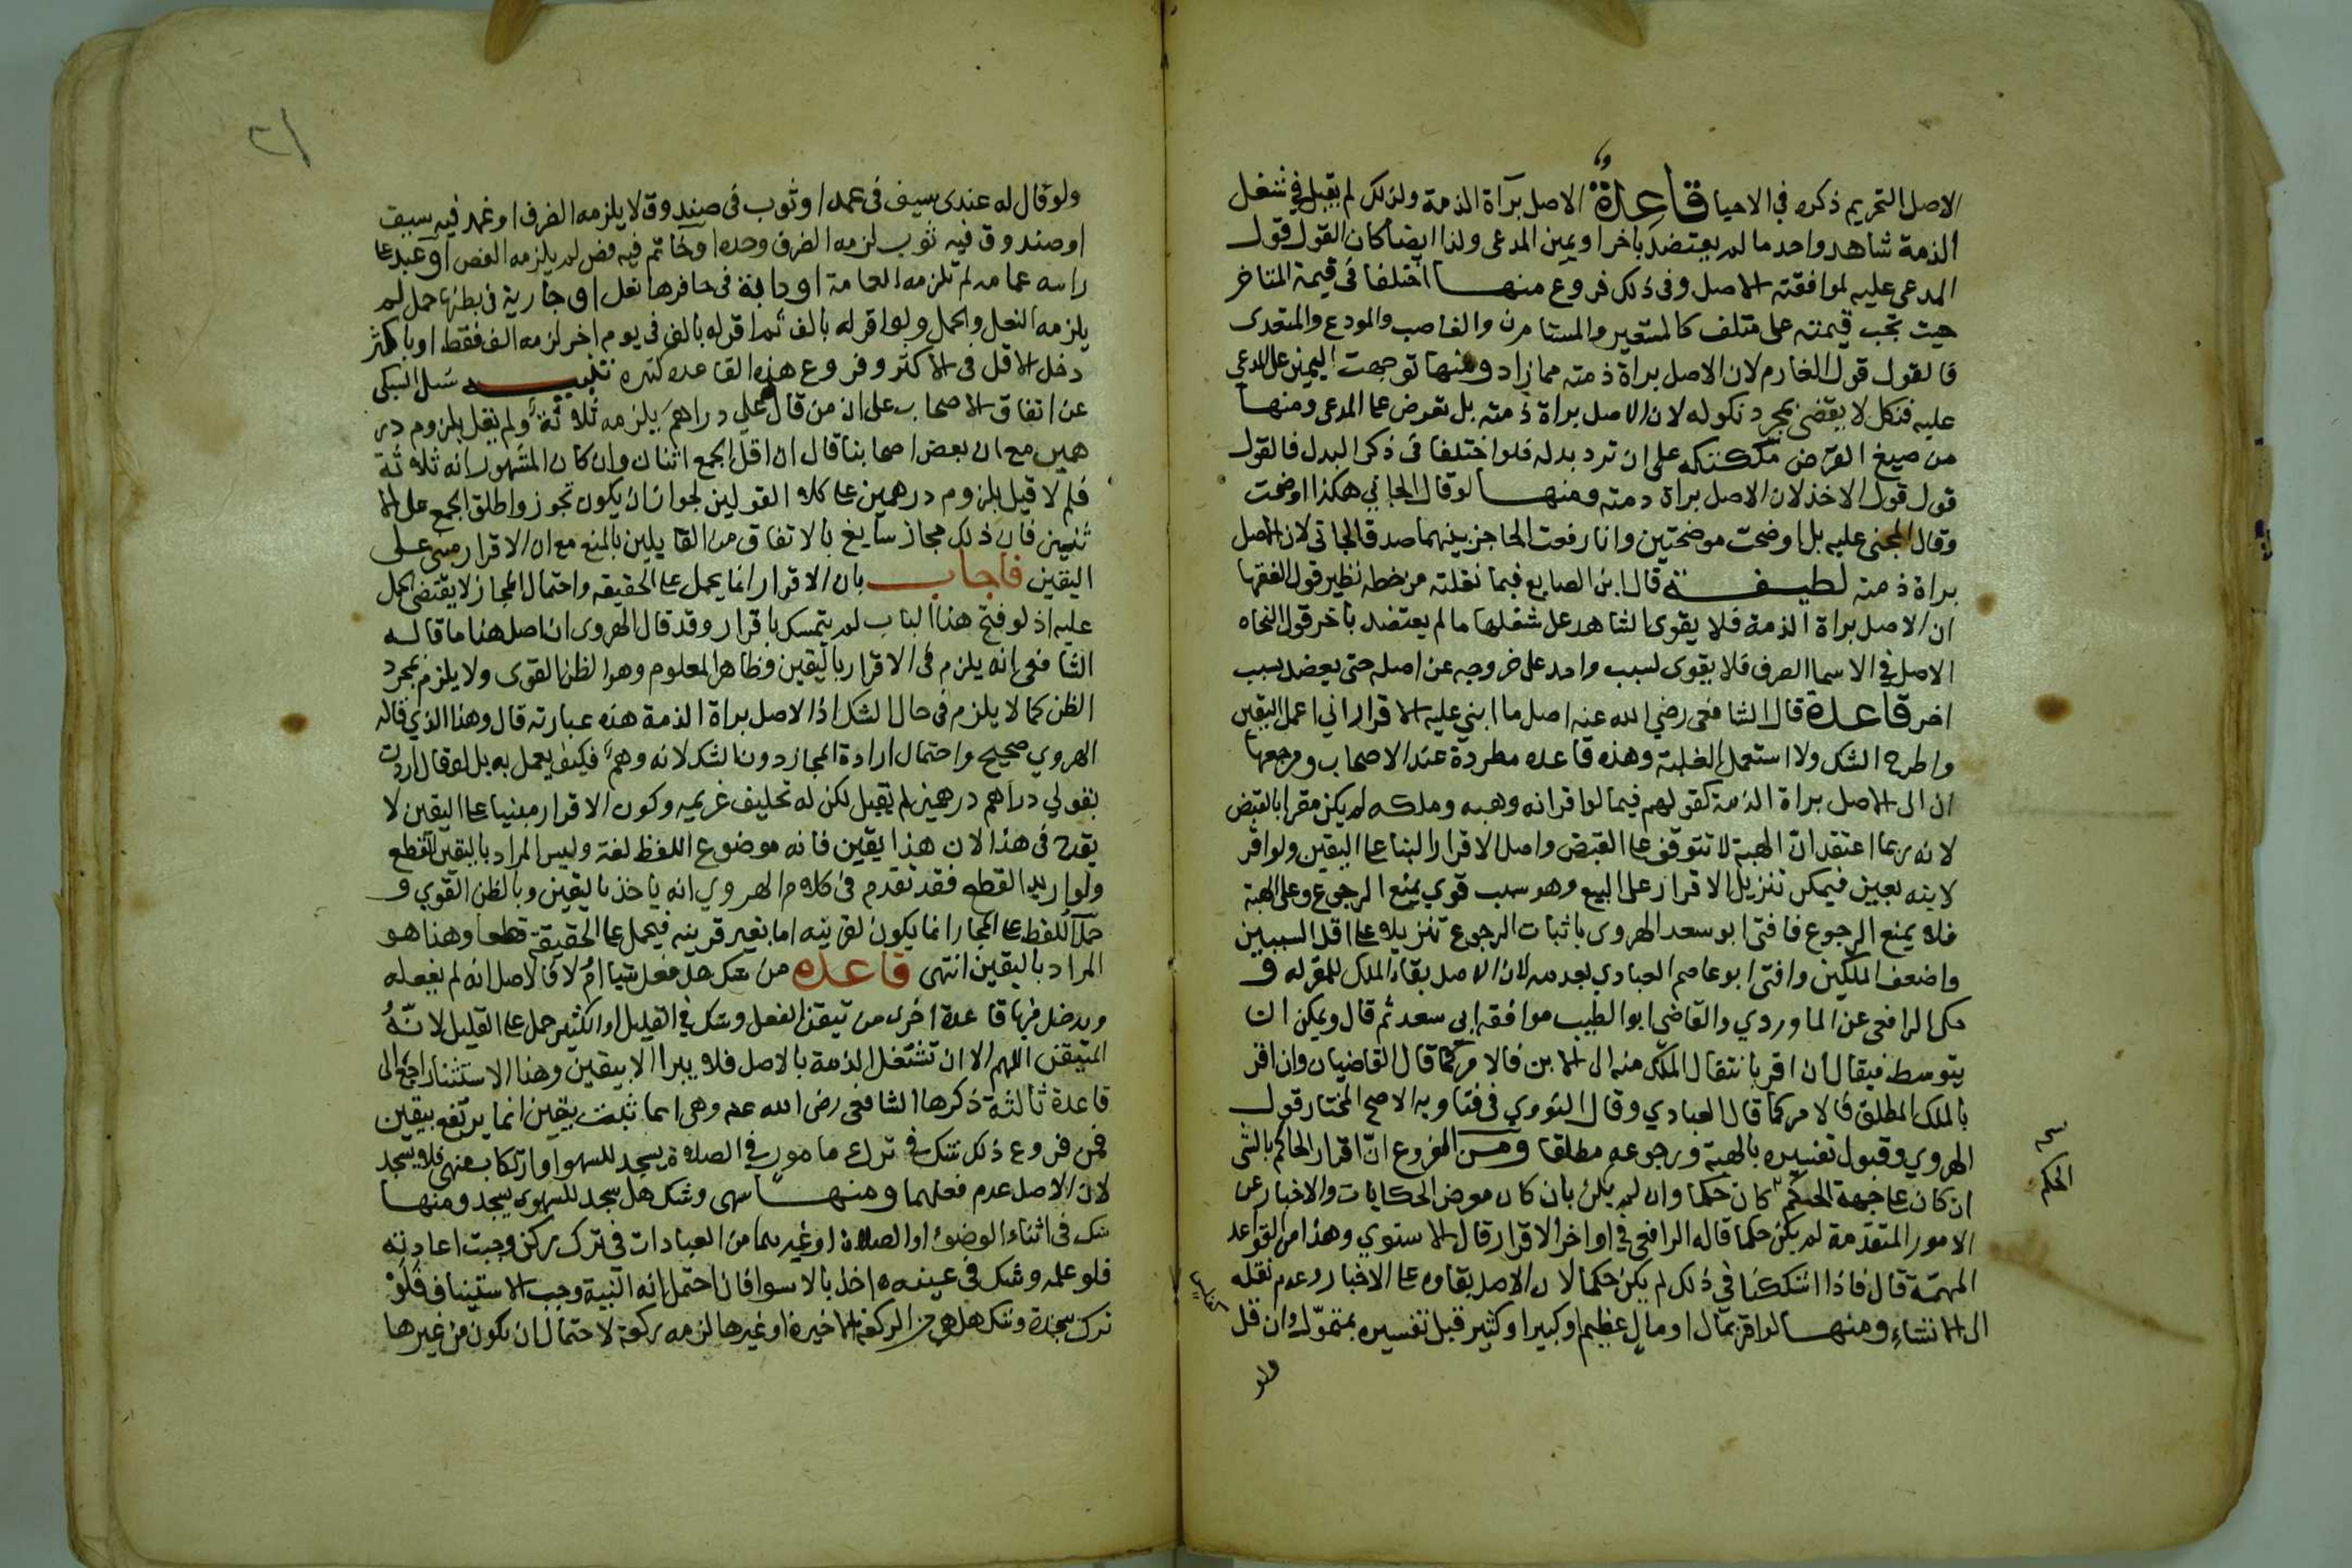 الاصل التحريم ذكره في الاحيا قاعدة الاصل برآة الذمة ولذلك لم يقبل في شغل
الذمة شاهد واحد ما لم يعتضد باخر او يمين المدعى ولذا ايضا كان القول قول
المدعى عليه لموافقته الاصل وفى ذلك فروع منها اختلفا فى قيمة المتلف
حيث تجب قيمته على متلف كالمستعير والمستام والغاصب والمودع والمتعدى
فالقول قول الغارم لان الاصل براة ذمته مما زاد ومنها توجهت اليمين على المدعى
عليه فنكل لا يقضى بمجرد نكوله لان الاصل براة ذمته بل تعرض على المدعى ومنها
من صيغ القرض ملكتكه على ان ترد بدله فلو اختلفا فى ذكر البدل فالقول
قول الاخذ لان الاصل براة ذمته ومنها لو قال الجاني هكذا اوضحت
وقال المجنى عليه بل اوضحت موضحتين وانا رفعت الحاجز بينهما صدق الجانى لان الاصل
براة ذمته لطيفة قال ابن الصايغ فيما نقلته من خطه نظير قول الفقها
ان الاصل براة الذمة فلا يقوى الشاهد على شغلها ما لم يعتضد باخر قول النحاه
الاصل في الاسما الصرف فلا يقوى لسبب واحد على خروجه عن اصله حتى يعضد بسبب
اخر قاعدة قال الشافعى رضي الله عنه اصل ما ابني عليه الاقرار اني اعمل اليقين
واطرح الشك ولا استعمل الغلبة وهذه قاعده مطردة عند الاصحاب ومرجعها
ان الى الاصل براة الذمة كقولهم فيما لو اقر انه وهبه وملكه لم يكن مقرا بالقبض
لانه ربما اعتقد ان الهبة لا تتوقف على القبض واصل الاقرار البنا على اليقين ولو اقر
لابنه بعين فيمكن تنزيل الاقرار على البيع وهو سبب قوي يمنع الرجوع وعلى الهبة
فلا يمنع الرجوع فافتى ابو سعد الهروى باثبات الرجوع تنزيلا على اقل السببين
واضعف الملكين وافتى ابو عاصم العبادي بعدمه لان الاصل بقاء الملك للمقر له و
حكى الرافعى عن الماوردي والقاضي ابو الطيب موافقة ابي سعد ثم قال ويمكن ان
يتوسط فيقال ان اقر بانتقال الملك منه الى الابن فالامر كما قال القاضيان وان اقر
بالملك المطلق فالامر كما قال العبادي وقال النووي فى فتاويه الاصح المختار قول
الهروي وقبول تفسيره بالهبة ورجوعه مطلقا ومن الفروع ان اقرار الحاكم بالشى
ان كان على جهة الحكم كان حكما وان لم يكن بان كان معرض الحكايات والاخبار عن
الامور المتقدمة لم يكن حكما قاله الرافعى في اواخر الاقرار قال الاسنوي وهذا من القواعد
المهمة قال فاذا اشككنا في ذلك لم يكن حكما لان الاصل بقاوه على الاخبار وعدم نقله
الى الانشاء ومنها لو اقر بمال او مال عظيم او كبير او كثير قبل تفسيره بمتمول وان قل
نسخه
الحكم
ولو
٢١
ولو قال له عندى سيف فى غمد او ثوب فى صندوق لا يلزمه الظرف او غمد فيه سيف
او صندوق فيه ثوب لزمه الظرف وحده او خاتم فيه فص لم يلزمه الفص او عبد على
راسه عمامه لم تلزمه العمامة او دابة فى حافرها نعل او جارية فى بطنها حمل لم
يلزمه النعل والحمل ولو اقر له بالف ثم اقر له بالف فى يوم اخر لزمه الف فقط او باكثر
دخل الاقل فى الاكثر وفروع هذه القاعده كثيره تنبيه سئل السبكى
عن اتفاق الاصحاب على ان من قال على دراهم يلزمه ثلاثة ولم يقل بلزوم در
همين مع ان بعض اصحابنا قال ان اقل الجمع اثنان وان كان المشهور انه ثلاثة
فلم لا قيل بلزوم درهمين على كلا القولين لجواز ان يكون تجوز واطلق الجمع على الا
ثنين فان ذلك مجاز سايغ بالاتفاق من القايلين بالمنع مع ان الاقرار مبنى على
اليقين فاجاب بان الاقرار انما يحمل على الحقيقه واحتمال المجاز لا يقتضى الحمل
عليه اذ لو فتح هذا الباب لم يتمسك باقرار وقد قال الهروى ان اصل هذا ما قاله
الشافعى انه يلزم فى الاقرار باليقين وظاهر المعلوم وهو الظن القوى ولا يلزم بمجرد
الظن كما لا يلزم فى حال الشك اذ الاصل براة الذمة هذه عبارته قال وهذا الذي قاله
الهروي صحيح واحتمال ارادة المجاز دون الشك لانه وهم فكيف يعمل به بل لو قال اردت
بقولي دراهم درهمين لم يقبل لكن له تحليف غريمه وكون الاقرار مبنيا على اليقين لا
يقدح فى هذا لان هذا يقين فانه موضوع اللفظ لغة وليس المراد باليقين القطع
ولو اريد القطع فقد تقدم فى كلام الهروي انه ياخذ باليقين وبالظن القوي و
حمل اللفظ على المجاز انما يكون لقرينه اما بغير قرينه فيحمل على الحقيقة قطعا وهذا هو
المراد باليقين انتهى قاعده من شك هل فعل شيا ام لا فالاصل انه لم يفعله
ويدخل فيها قاعدة اخرى من تيقن الفعل وشك في القليل او الكثير حمل على القليل لانه
المتيقن اللهم الا ان تشتغل الذمة بالاصل فلا يبرا الا بيقين وهذا الاستثنا راجع الى
قاعدة ثالثة ذكرها الشافعى رضى الله عنه وهى ان ما ثبت بيقين انما يرتفع بيقين
فمن فروع ذلك شك فى ترك مامور في الصلاة يسجد للسهو او ارتكاب منهى فلا يسجد
لان الاصل عدم فعلهما ومنها سهى وشك هل سجد للسهو يسجد ومنها
شك فى اثناء الوضوء او الصلاة او غيرهما من العبادات في ترك ركن وجبت اعادته
فلو علمه وشك فى عينه اخذ بالاسوا فان احتمل انه النية وجب الاستيناف فلو
ترك سجدة وشك هل هى من الركعة الاخيرة او غيرها لزمه ركعة لاحتمال ان تكون من غيرها